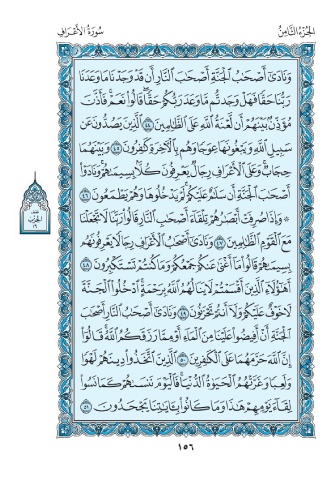 الجزء الثامن
سورة الأعراف
وَنَادَىٰٓ أَصۡحَٰبُ ٱلۡجَنَّةِ أَصۡحَٰبَ ٱلنَّارِ أَن قَدۡ وَجَدۡنَا مَا وَعَدَنَا
رَبُّنَا حَقّٗا فَهَلۡ وَجَدتُّم مَّا وَعَدَ رَبُّكُمۡ حَقّٗاۖ قَالُواْ نَعَمۡۚ فَأَذَّنَ
مُؤَذِّنُۢ بَيۡنَهُمۡ أَن لَّعۡنَةُ ٱللَّهِ عَلَى ٱلظَّٰلِمِينَ ٤٤ ٱلَّذِينَ يَصُدُّونَ عَن
سَبِيلِ ٱللَّهِ وَيَبۡغُونَهَا عِوَجٗا وَهُم بِٱلۡأٓخِرَةِ كَٰفِرُونَ ٤٥ وَبَيۡنَهُمَا
حِجَابٞۚ وَعَلَى ٱلۡأَعۡرَافِ رِجَالٞ يَعۡرِفُونَ كُلَّۢا بِسِيمَىٰهُمۡۚ وَنَادَوۡاْ
أَصۡحَٰبَ ٱلۡجَنَّةِ أَن سَلَٰمٌ عَلَيۡكُمۡۚ لَمۡ يَدۡخُلُوهَا وَهُمۡ يَطۡمَعُونَ ٤٦
۞ وَإِذَا صُرِفَتۡ أَبۡصَٰرُهُمۡ تِلۡقَآءَ أَصۡحَٰبِ ٱلنَّارِ قَالُواْ رَبَّنَا لَا تَجۡعَلۡنَا
مَعَ ٱلۡقَوۡمِ ٱلظَّٰلِمِينَ ٤٧ وَنَادَىٰٓ أَصۡحَٰبُ ٱلۡأَعۡرَافِ رِجَالٗا يَعۡرِفُونَهُم
بِسِيمَىٰهُمۡ قَالُواْ مَآ أَغۡنَىٰ عَنكُمۡ جَمۡعُكُمۡ وَمَا كُنتُمۡ تَسۡتَكۡبِرُونَ ٤٨
أَهَٰٓؤُلَآءِ ٱلَّذِينَ أَقۡسَمۡتُمۡ لَا يَنَالُهُمُ ٱللَّهُ بِرَحۡمَةٍۚ ٱدۡخُلُواْ ٱلۡجَنَّةَ
لَا خَوۡفٌ عَلَيۡكُمۡ وَلَآ أَنتُمۡ تَحۡزَنُونَ ٤٩ وَنَادَىٰٓ أَصۡحَٰبُ ٱلنَّارِ أَصۡحَٰبَ
ٱلۡجَنَّةِ أَنۡ أَفِيضُواْ عَلَيۡنَا مِنَ ٱلۡمَآءِ أَوۡ مِمَّا رَزَقَكُمُ ٱللَّهُۚ قَالُوٓاْ
إِنَّ ٱللَّهَ حَرَّمَهُمَا عَلَى ٱلۡكَٰفِرِينَ ٥٠ ٱلَّذِينَ ٱتَّخَذُواْ دِينَهُمۡ لَهۡوٗا
وَلَعِبٗا وَغَرَّتۡهُمُ ٱلۡحَيَوٰةُ ٱلدُّنۡيَاۚ فَٱلۡيَوۡمَ نَنسَىٰهُمۡ كَمَا نَسُواْ
لِقَآءَ يَوۡمِهِمۡ هَٰذَا وَمَا كَانُواْ بِـَٔايَٰتِنَا يَجۡحَدُونَ ٥١
١٥٦